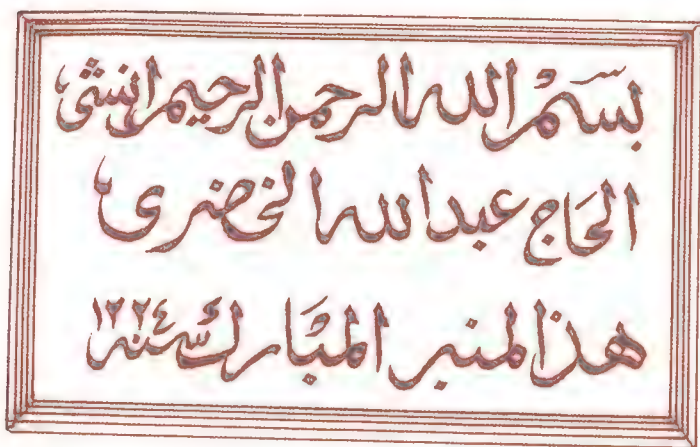 بسم الله الرحمن الرحيم انشى
الحاج عبد الله الخضرى
هذا المنبر المبارك سنة ١٢٢٤